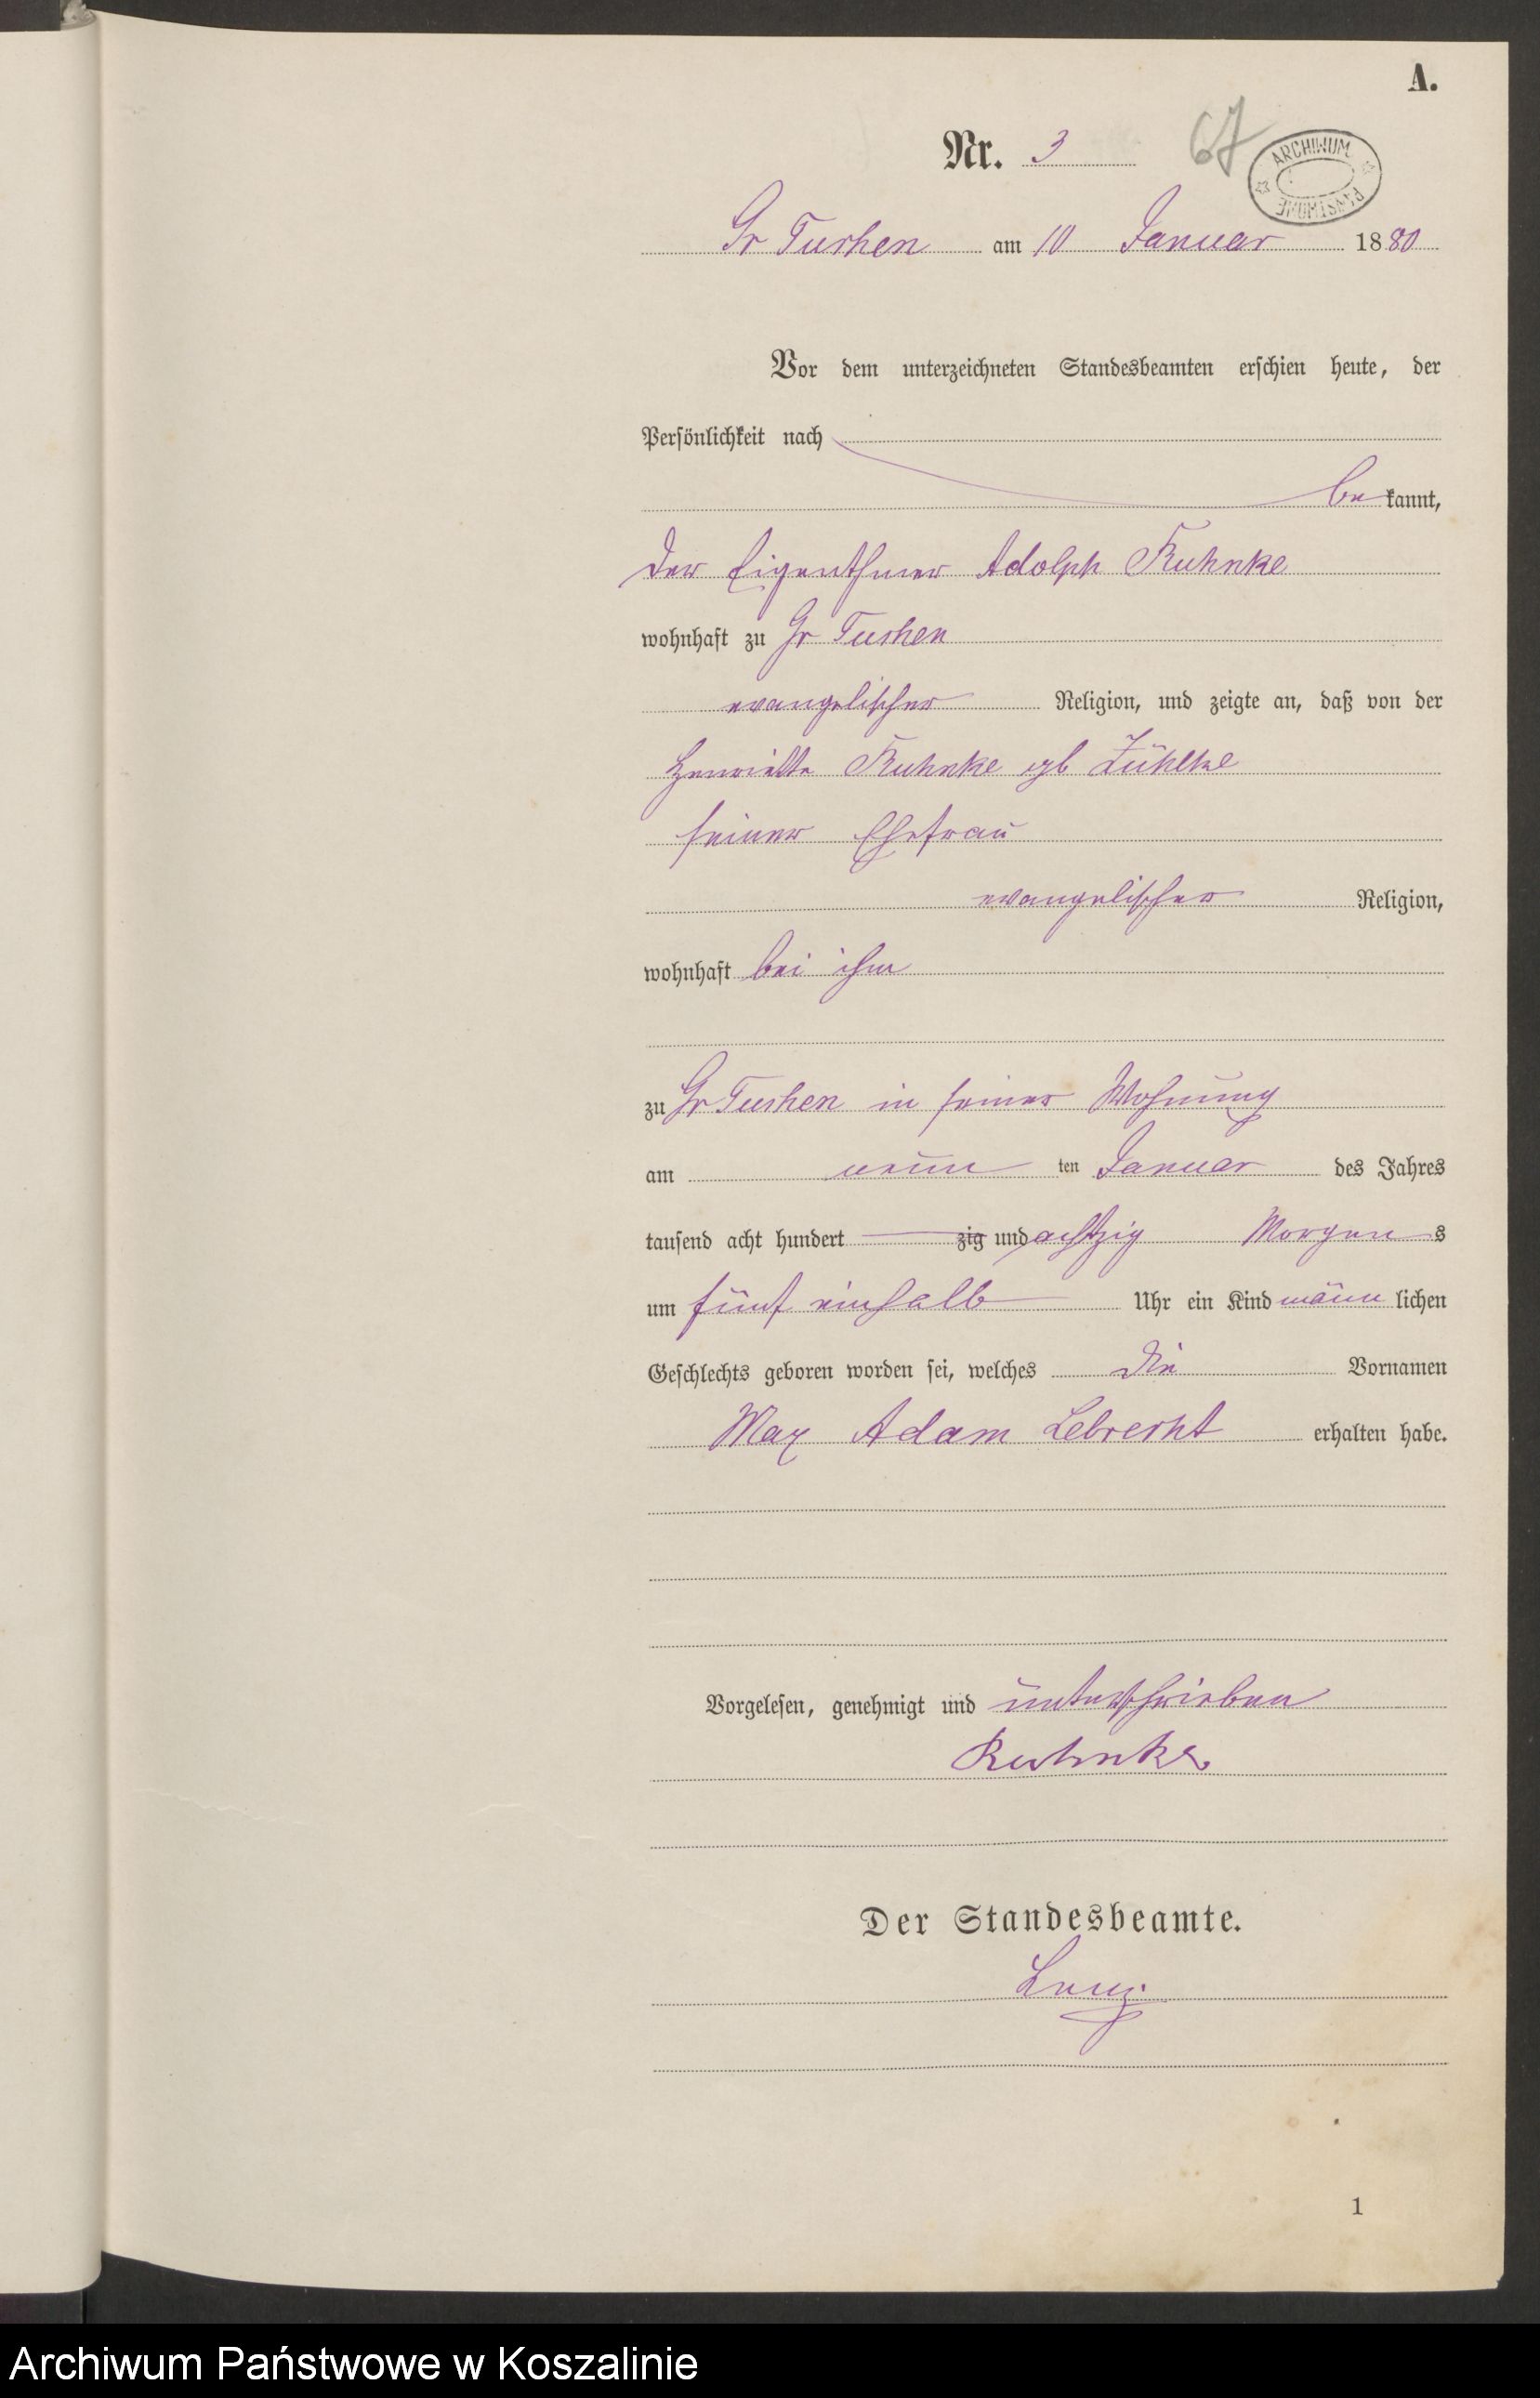 A.
Nr. 3
67
ARCHIWUM PAŃSTWOWE
Gr Tuchen am 10 Januar 1880
Vor dem unterzeichneten Standesbeamten erschien heute, der
Persönlichkeit nach
bekannt,
der Eigenthümer Adolph Kuhnke
wohnhaft zu Gr Tuchen
evangelischer Religion, und zeigte an, daß von der
Henriette Kuhnke gb Zühlke
seiner Ehefrau
evangelischer Religion,
wohnhaft bei ihm
zu Gr Tuchen in seiner Wohnung
am neun ten Januar des Jahres
tausend acht hundert zig und achtzig Morgens
um fünf einhalb Uhr ein Kind männlichen
Geschlechts geboren worden sei, welches die Vornamen
Max Adam Lebrecht erhalten habe.
Vorgelesen, genehmigt und unterschrieben
Kuhnke
Der Standesbeamte.
1
Archiwum Państwowe w Koszalinie